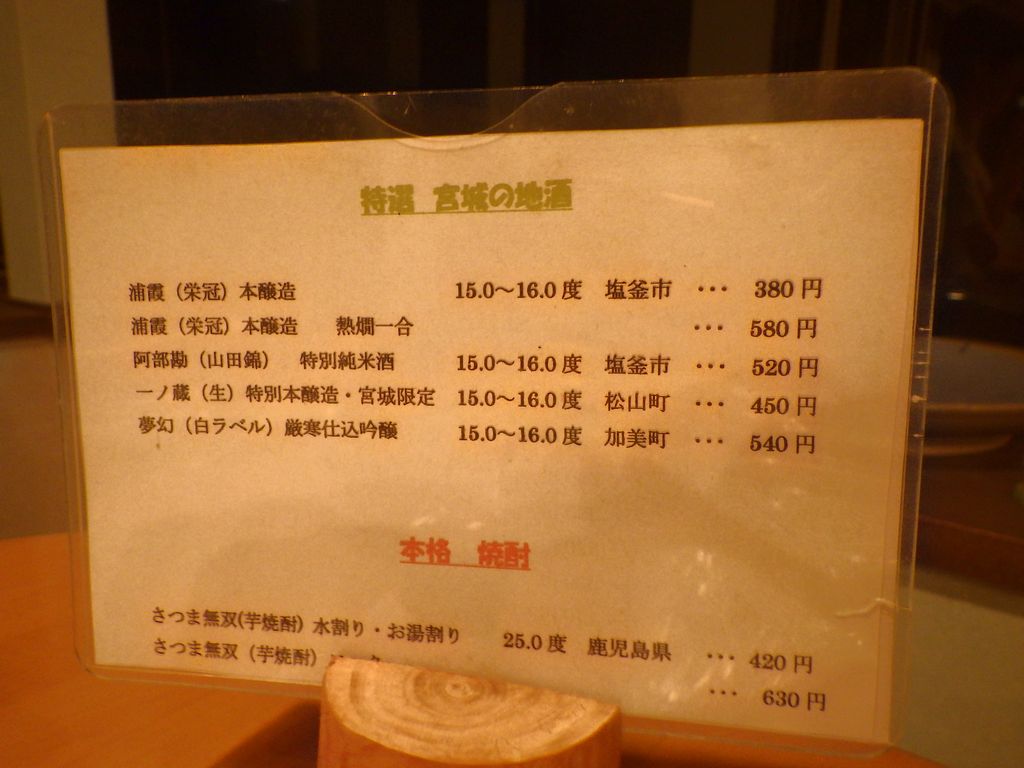 特選 宮城の地酒
浦霞（栄冠）本醸造 15.0～16.0度 塩釜市 ･･･ 380円
浦霞（栄冠）本醸造 熱燗一合 ･･･ 580円
阿部勘（山田錦） 特別純米酒 15.0～16.0度 塩釜市 ･･･ 520円
一ノ蔵（生）特別本醸造・宮城限定 15.0～16.0度 松山町 ･･･ 450円
夢幻（白ラベル）厳寒仕込吟醸 15.0～16.0度 加美町 ･･･ 540円
本格 焼酎
さつま無双(芋焼酎) 水割り・お湯割り 25.0度 鹿児島県 ･･･ 420円
さつま無双（芋焼酎） ･･･ 630円